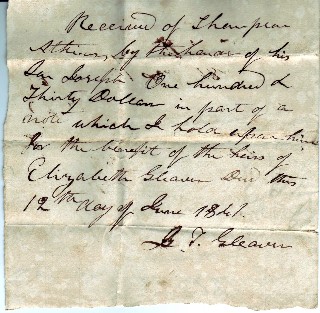 Received of Thompson
Atkins, by the hands of his
Son Joseph One hundred &
Thirty Dollars in part of a
note which I hold upon him
for the benefit of the heirs of
Elizabeth Gleaves Decd this
12th day of June 1841.
T. Gleaves